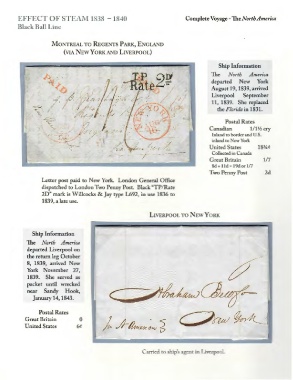 EFFECT OF STEAM 1838 – 1840
Complete Voyage - The North America
Black Ball Line
MONTREAL TO REGENTS PARK, ENGLAND
(VIA NEW YORK AND LIVERPOOL)
PAID
T.P
Rate 2D
NEW YORK
Ship Information
The North America
departed New York
August 19, 1839, arrived
Liverpool September
11, 1839. She replaced
the Florida in 1831.
Postal Rates
Canadian 1/1½ cry
Inland to border and U.S.
inland to New York
United States 18¾
Collected in Canada
Great Britain 1/7
8d + 11d = 19d or 1/7
Two Penny Post 2d
Letter post paid to New York. London General Office
dispatched to London Two Penny Post. Black "TP/Rate
2D" mark is Willcocks & Jay type L692, in use 1836 to
1839, a late use.
LIVERPOOL TO NEW YORK
Ship Information
The North America
departed Liverpool on
the return leg October
8, 1839, arrived New
York November 27,
1839. She served as
packet until wrecked
near Sandy Hook,
January 14, 1843.
Postal Rates
Great Britain 0
United States 6¢
6
Abraham Bell &
New York
Carried to ship's agent in Liverpool.